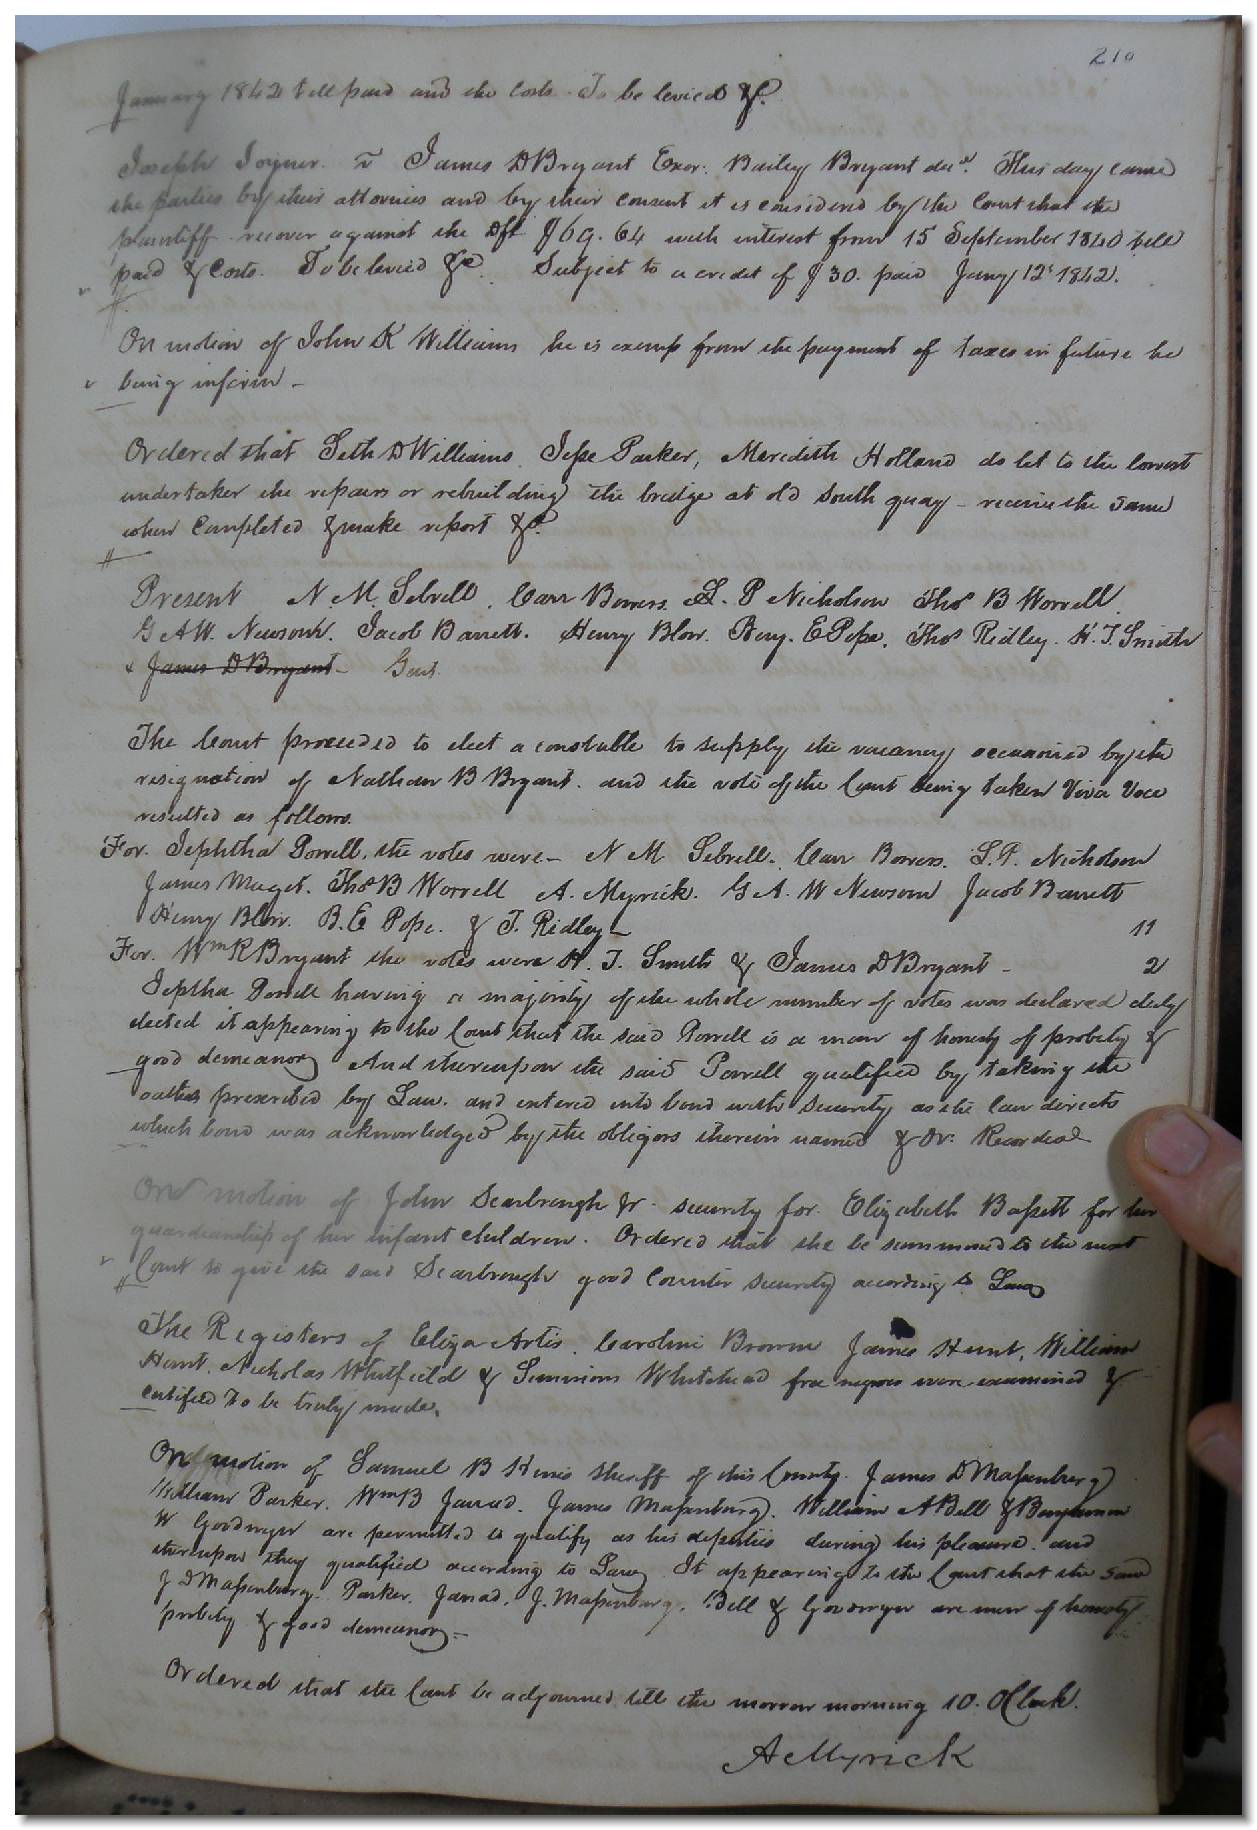 210
January 1842 till paid and the costs. To be levied &c.
Joseph Joyner. v James D Bryant Exor. Bailey Bryant decd. This day came
the parties by their attornies and by their consent it is considered by the Court that the
plaintiff recover against the Dft $69.64 with interest from 15 September 1840 till
paid & Costs. To be levied &c. Subject to a credit of $30. paid Jany 12th 1842.
On motion of John K Williams he is exemp from the payment of taxes in future he
being infirm -
Ordered that Seth D Williams Jesse Parker, Meredith Holland do let to the lowest
undertaker the repairs or rebuilding the bridge at old South quay - receive the same
when Completed & make report &c.
Present N. M. Sebrell. Carr Bowers. L. P Nicholson Thos B Worrell.
G A W. Newsom. Jacob Barrett. Henry Blow. Benj. E Pope. Thos Ridley. H. T. Smith
& James D Bryant - Gent.
The Court proceeded to elect a constable to supply the vacancy occasioned by the
resignation of Nathan B Bryant. and the vote of the Court being taken Viva Voce
resulted as follows.
For. Jephtha Powell, the votes were - N M Sebrell. Carr Bowers. L. P. Nicholson
James Maget. Thos B Worrell A. Myrick. G A. W Newsom Jacob Barrett
Henry Blow. B. E Pope. & T. Ridley - 11
For. Wm R Bryant the votes were H. T. Smith & James D Bryant - 2
Jeptha Powell having a majority of the whole number of votes was declared duly
elected it appearing to the Court that the said Powell is a man of honesty of probity &
good demeanor And thereupon the said Powell qualified by taking the
oaths prescribed by Law. and entered into bond with security as the law directs
which bond was acknowledged by the obligors therein named & Or. Recorded
On motion of John Scarbrough Jr. security for Elizabeth Bassett for her
guardianship of her infant children. Ordered that she be summoned to the next
Court to give the said Scarbrough good Counter security according to Law
The Registers of Eliza Artis. Caroline Brown James Hunt, William
Hunt, Nicholas Whitfield & Simmons Whitehead free negroes were examined &
certified to be truly made.
On motion of Samuel B Hines Sheriff of this County. James D Massenburg
William Parker. Wm B Jarrad. James Massenburg. William A Bell & Benjamin
W Goodwyn are permitted to qualify as his deputies during his pleasure. and
thereupon they qualified according to Law It appearing to the Court that the said
J D Massenburg. Parker, Jarrad, J. Massenburg. Bell & Goodwyn are men of honesty
probity & good demeanor -
Ordered that the Court be adjourned till the morrow morning 10. OClock.
A Myrick